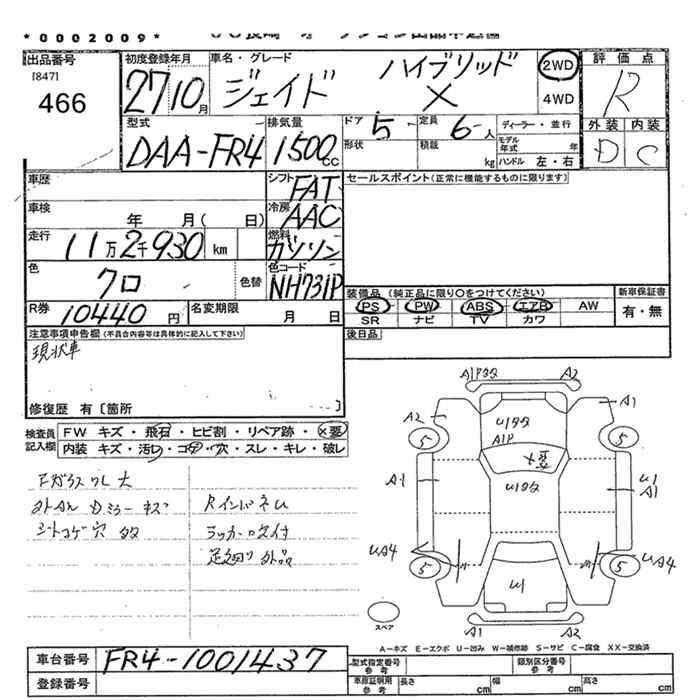 *0002009*
出品番号
[847]
466
初度登録年月
27 10月
車名・グレード
ジェイド ハイブリッド X
2WD
4WD
評価点
R
外装 内装
D C
型式
DAA-FR4
排気量
1500cc
ドア 5
形状
定員 6人
積載 kg
ディーラー・並行
モデル年式 年
ハンドル 左・右
車歴
シフト FAT
セールスポイント(正常に機能するものに限ります)
車検 年 月( 日)
冷房 AAC
走行 11万2千930 km
燃料 ガソリン
色 クロ 色替
色コード NH731P
装備品 (純正品に限り○をつけてください)
新車保証書
有・無
PS PW ABS エアB AW
SR ナビ TV カワ
R券 10440円
名変期限 月 日
後日品
注意事項申告欄(不具合内容等は具体的に記入して下さい)
現状車
修復歴 有〔箇所
検査員記入欄
FW キズ・飛石・ヒビ割・リペア跡・×要
内装 キズ・汚レ・コゲ・穴・スレ・キレ・破レ
シートコゲ穴 多
Rインパネム
ラッカー吹付
足廻り 外品
A1 A2
A2 A1
A1P
×要
5 5
A1 U1
A1
UA4 UA4
5 5
U1
スペア
A-キズ E-エクボ U-凹み W-補修跡 S-サビ C-腐食 XX-交換済
車台番号 FR4-1001437
登録番号
型式指定番号 参考
類別区分番号 参考
車庫証明用 参考
長さ cm 幅 cm 高さ cm